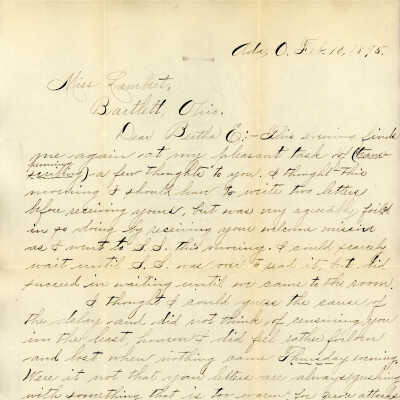 Ada, O. Feb. 10, 1895.
Miss Lambert,
Bartlett, Ohio.
Dear Bertha E:- This evening finds
me again at my pleasant task of (tran-
) a few thoughts to you. I thought this
morning I should have to write two letters
before receiving yours, but was very agreeably foiled
in so doing by receiving your welcome missive
as I went to S.S. this morning. I could scarcely
wait until S.S. was over to read it but did
succeed in waiting until we came to the room.
I thought I could guess the cause of
the delay and did not think of censuring you
in the least, however I did feel rather forlorn
and lost when nothing came Thursday evening.
Were it not that your letters are always
with something that is too warm for